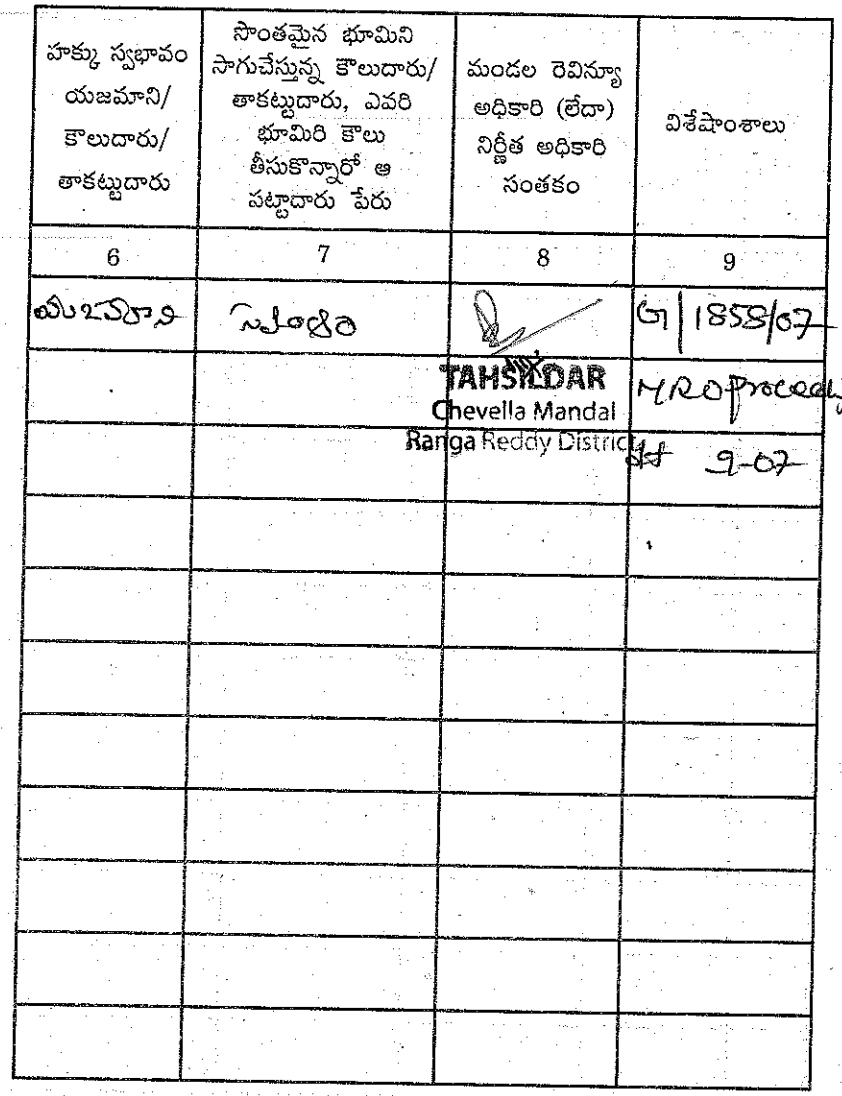 హక్కు స్వభావం
యజమాని/
కౌలుదారు/
తాకట్టుదారు
సొంతమైన భూమిని
సాగుచేస్తున్న కౌలుదారు/
తాకట్టుదారు, ఎవరి
భూమిరి కౌలు
తీసుకొన్నారో ఆ
పట్టాదారు పేరు
మండల రెవిన్యూ
అధికారి (లేదా)
నిర్ణీత అధికారి
సంతకం
విశేషాంశాలు
6 7 8 9
యజమాని
G/1858/07
TAHSILDAR
Chevella Mandal
Ranga Reddy District
MRO
9-07